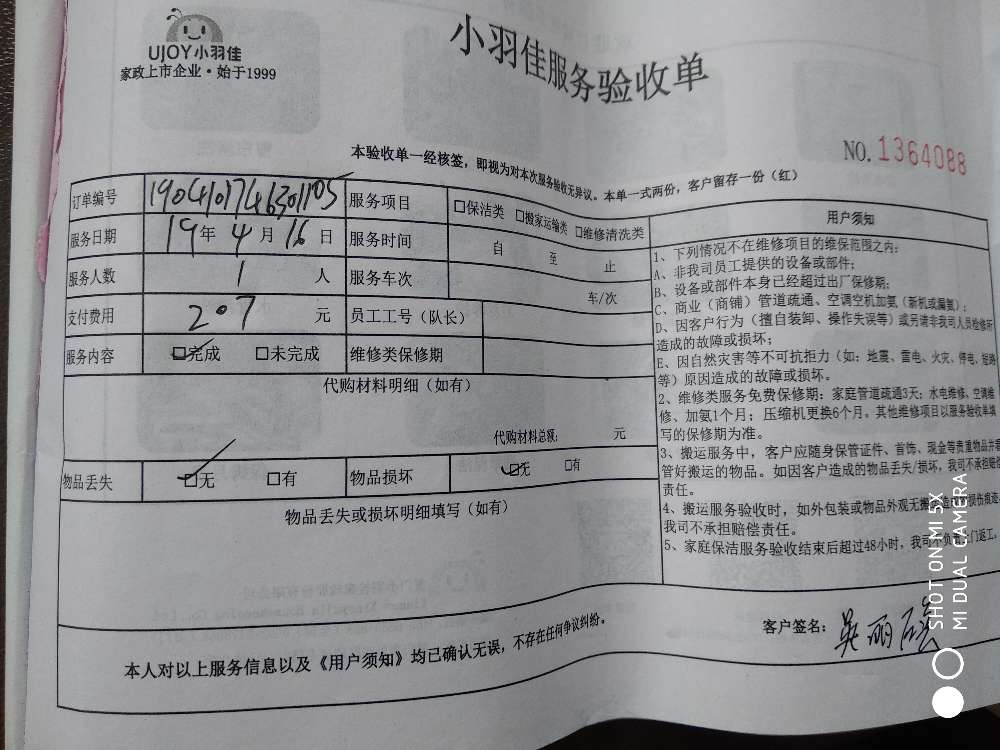 UJOY小羽佳
家政上市企业·始于1999
小羽佳服务验收单
NO.1364088
本验收单一经核签，即视为对本次服务验收无异议。本单一式两份，客户留存一份（红）
订单编号 1904101746301105 服务项目 □保洁类 □搬家运输类 □维修清洗类
服务日期 19年4月16日 服务时间 自 至 止
服务人数 1 人 服务车次 车/次
支付费用 207 元 员工工号（队长）
服务内容 □完成 □未完成 维修类保修期
代购材料明细（如有）
代购材料总额： 元
物品丢失 □无 □有 物品损坏 □无 □有
物品丢失或损坏明细填写（如有）
用户须知
1、下列情况不在维修项目的维保范围之内：
A、非我司员工提供的设备或部件；
B、设备或部件本身已经超过出厂保修期；
C、商业（商铺）管道疏通、空调空机加氨（新机或漏氨）；
D、因客户行为（擅自装卸、操作失误等）或另请非我司人员检修所
造成的故障或损坏；
E、因自然灾害等不可抗拒力（如：地震、雷电、火灾、停电、短路
等）原因造成的故障或损坏。
2、维修类服务免费保修期：家庭管道疏通3天；水电维修、空调维
修、加氨1个月；压缩机更换6个月。其他维修项目以服务验收单填
写的保修期为准。
3、搬运服务中，客户应随身保管证件、首饰、现金等贵重物品并看
管好搬运的物品。如因客户造成的物品丢失/损坏，我司不承担赔偿
责任。
4、搬运服务验收时，如外包装或物品外观无搬运造成的损伤痕迹，
我司不承担赔偿责任。
5、家庭保洁服务验收结束后超过48小时，我司不负责上门返工。
本人对以上服务信息以及《用户须知》均已确认无误，不存在任何争议纠纷。
客户签名：吴丽
SHOT ON MI 5X
MI DUAL CAMERA